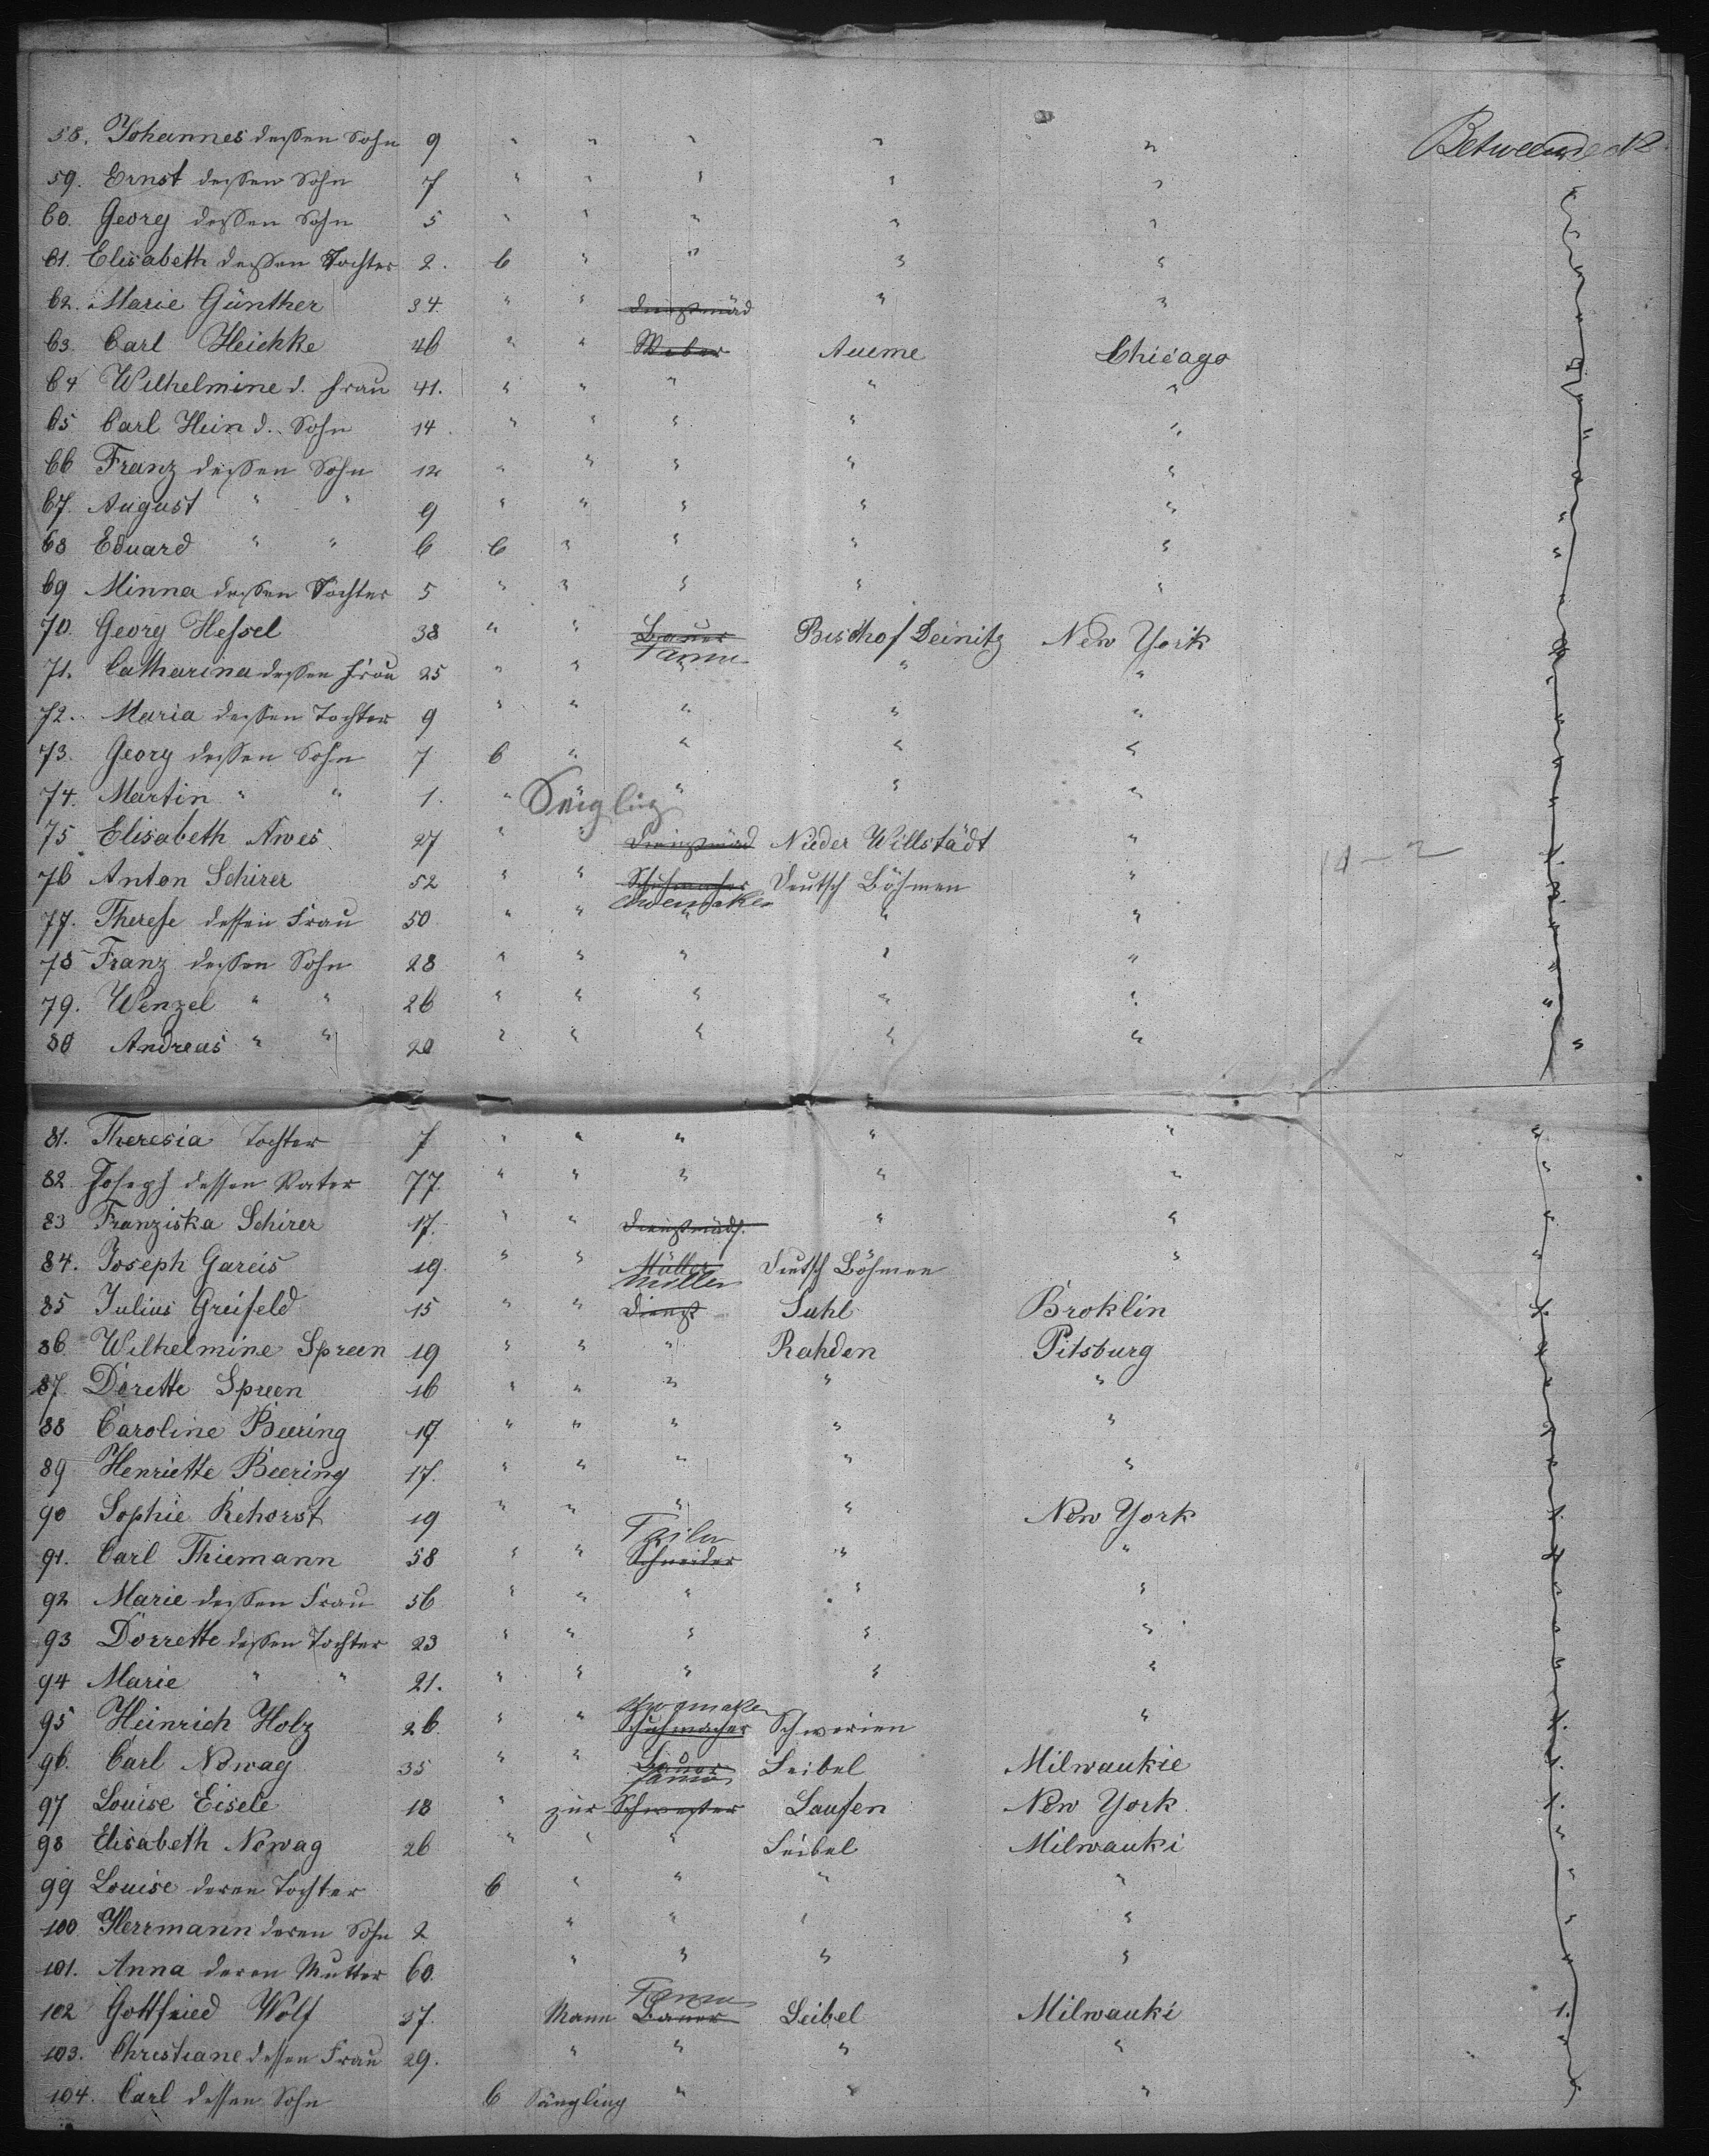 58. Johannes dessen Sohn 9 " " " " " Betweendeck
59. Ernst dessen Sohn 7 " " " " "
60. Georg dessen Sohn 5 " " " " "
61. Elisabeth dessen Tochter 2. 6 " " " "
62. Marie Günther 34. " " " "
63. Carl Heichke 46 " " Weber Aueme Chicago
64 Wilhelmine d. Frau 41. " " " " "
65 Carl Hein d. Sohn 14 " " " " "
66 Franz dessen Sohn 12 " " " " "
67. August " " 9 " " " " "
68 Eduard " " 6 6 " " " "
69 Minna dessen Tochter 5 " " " " "
70. Georg Hessel 38 " " Bauer Bischof Deinitz New York
Farmer
71. Catharina dessen Frau 25 " " " " "
72. Maria dessen Tochter 9 " " " " "
73. Georg dessen Sohn 7 6 " " " "
74. Martin " " 1. " Säugling " " "
75 Elisabeth Awes 27 " " Nieder Willstädt "
76 Anton Schirer 52 " " Schuhmacher Deutsch Böhmen "
77. Therese dessen Frau 50 " " " " "
78 Franz dessen Sohn 28 " " " " "
79. Wenzel " " 26 " " " " "
80 Andreas " " 20 " " " " "
81. Theresia Tochter 7 " " " " "
82. Joseph dessen Vater 77. " " " " "
83 Franziska Schirer 17. " " Dienstmädch. " "
84. Joseph Gareis 19. " " Müller Deutsch Böhmen "
Miller
85 Julius Greifeld 15 " " Dienst Suhl Broklin
86 Wilhelmine Spreen 19 " " " Rahden Pitsburg
87. Dorette Spreen 16 " " " " "
88 Caroline Beering 19. " " " " "
89 Henriette Beering 17. " " " " "
90 Sophie Rehorst 19 " " " " New York
Tailor
91. Carl Thiemann 58 " " Schneider " "
92 Marie dessen Frau 56 " " " " "
93 Dorrette dessen Tochter 23 " " " " "
94 Marie " " 21. " " " " "
95 Heinrich Holz 26 " " Schuhmacher Schwerien "
96. Carl Nowag 35 " " Bauer Leibel Milwaukie
97 Louise Eisele 18 " zur Schwester Laufen New York
98 Elisabeth Nowag 26 " " " Leibel Milwauki
99 Louise deren Tochter 6 " " " "
100 Herrmann deren Sohn 2 " " " "
101. Anna deren Mutter 60. " " " "
Farmer
102 Gottfried Wolf 37. Mann Bauer Leibel Milwauki
103. Christiane dessen Frau 29. " " " "
104. Carl dessen Sohn 6 Säugling " " "